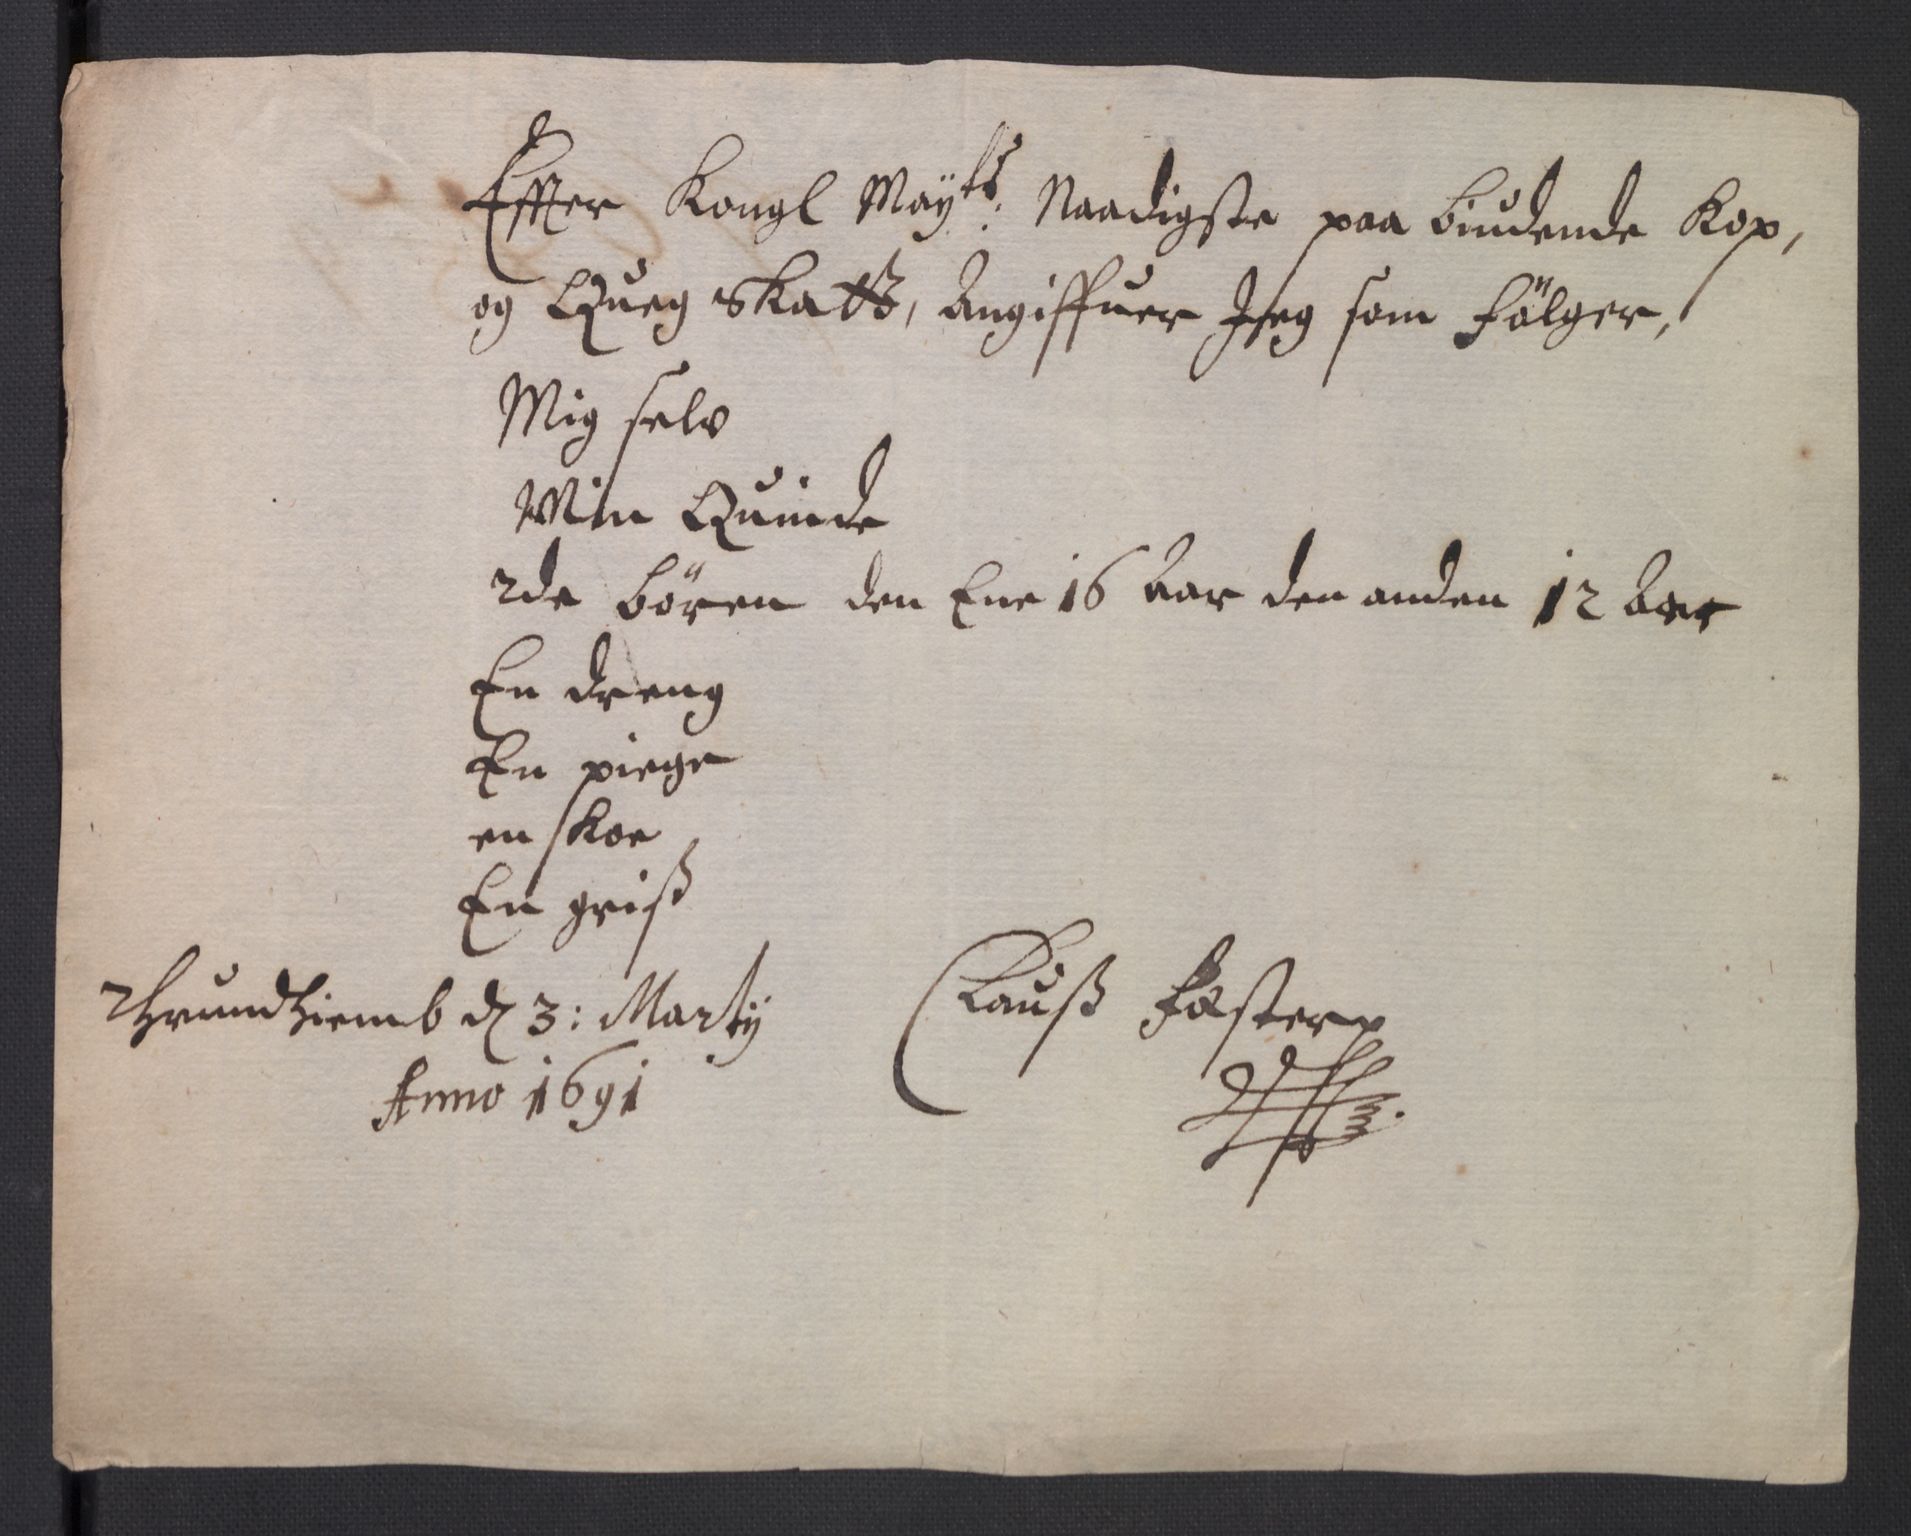 Effter Kongl Maÿts: Naadigste paa biudende Kop,
og Queg skatt, Angiffuer Jeg som fölger,
Mig selv
Min Quinde
2de bören den Ene 16 aar den anden 12 Aar
En dreng
En piege
en skoe
En griß
Thrundhiemb d 3: Martÿ
Anno 1691
Clauß Fæsterp